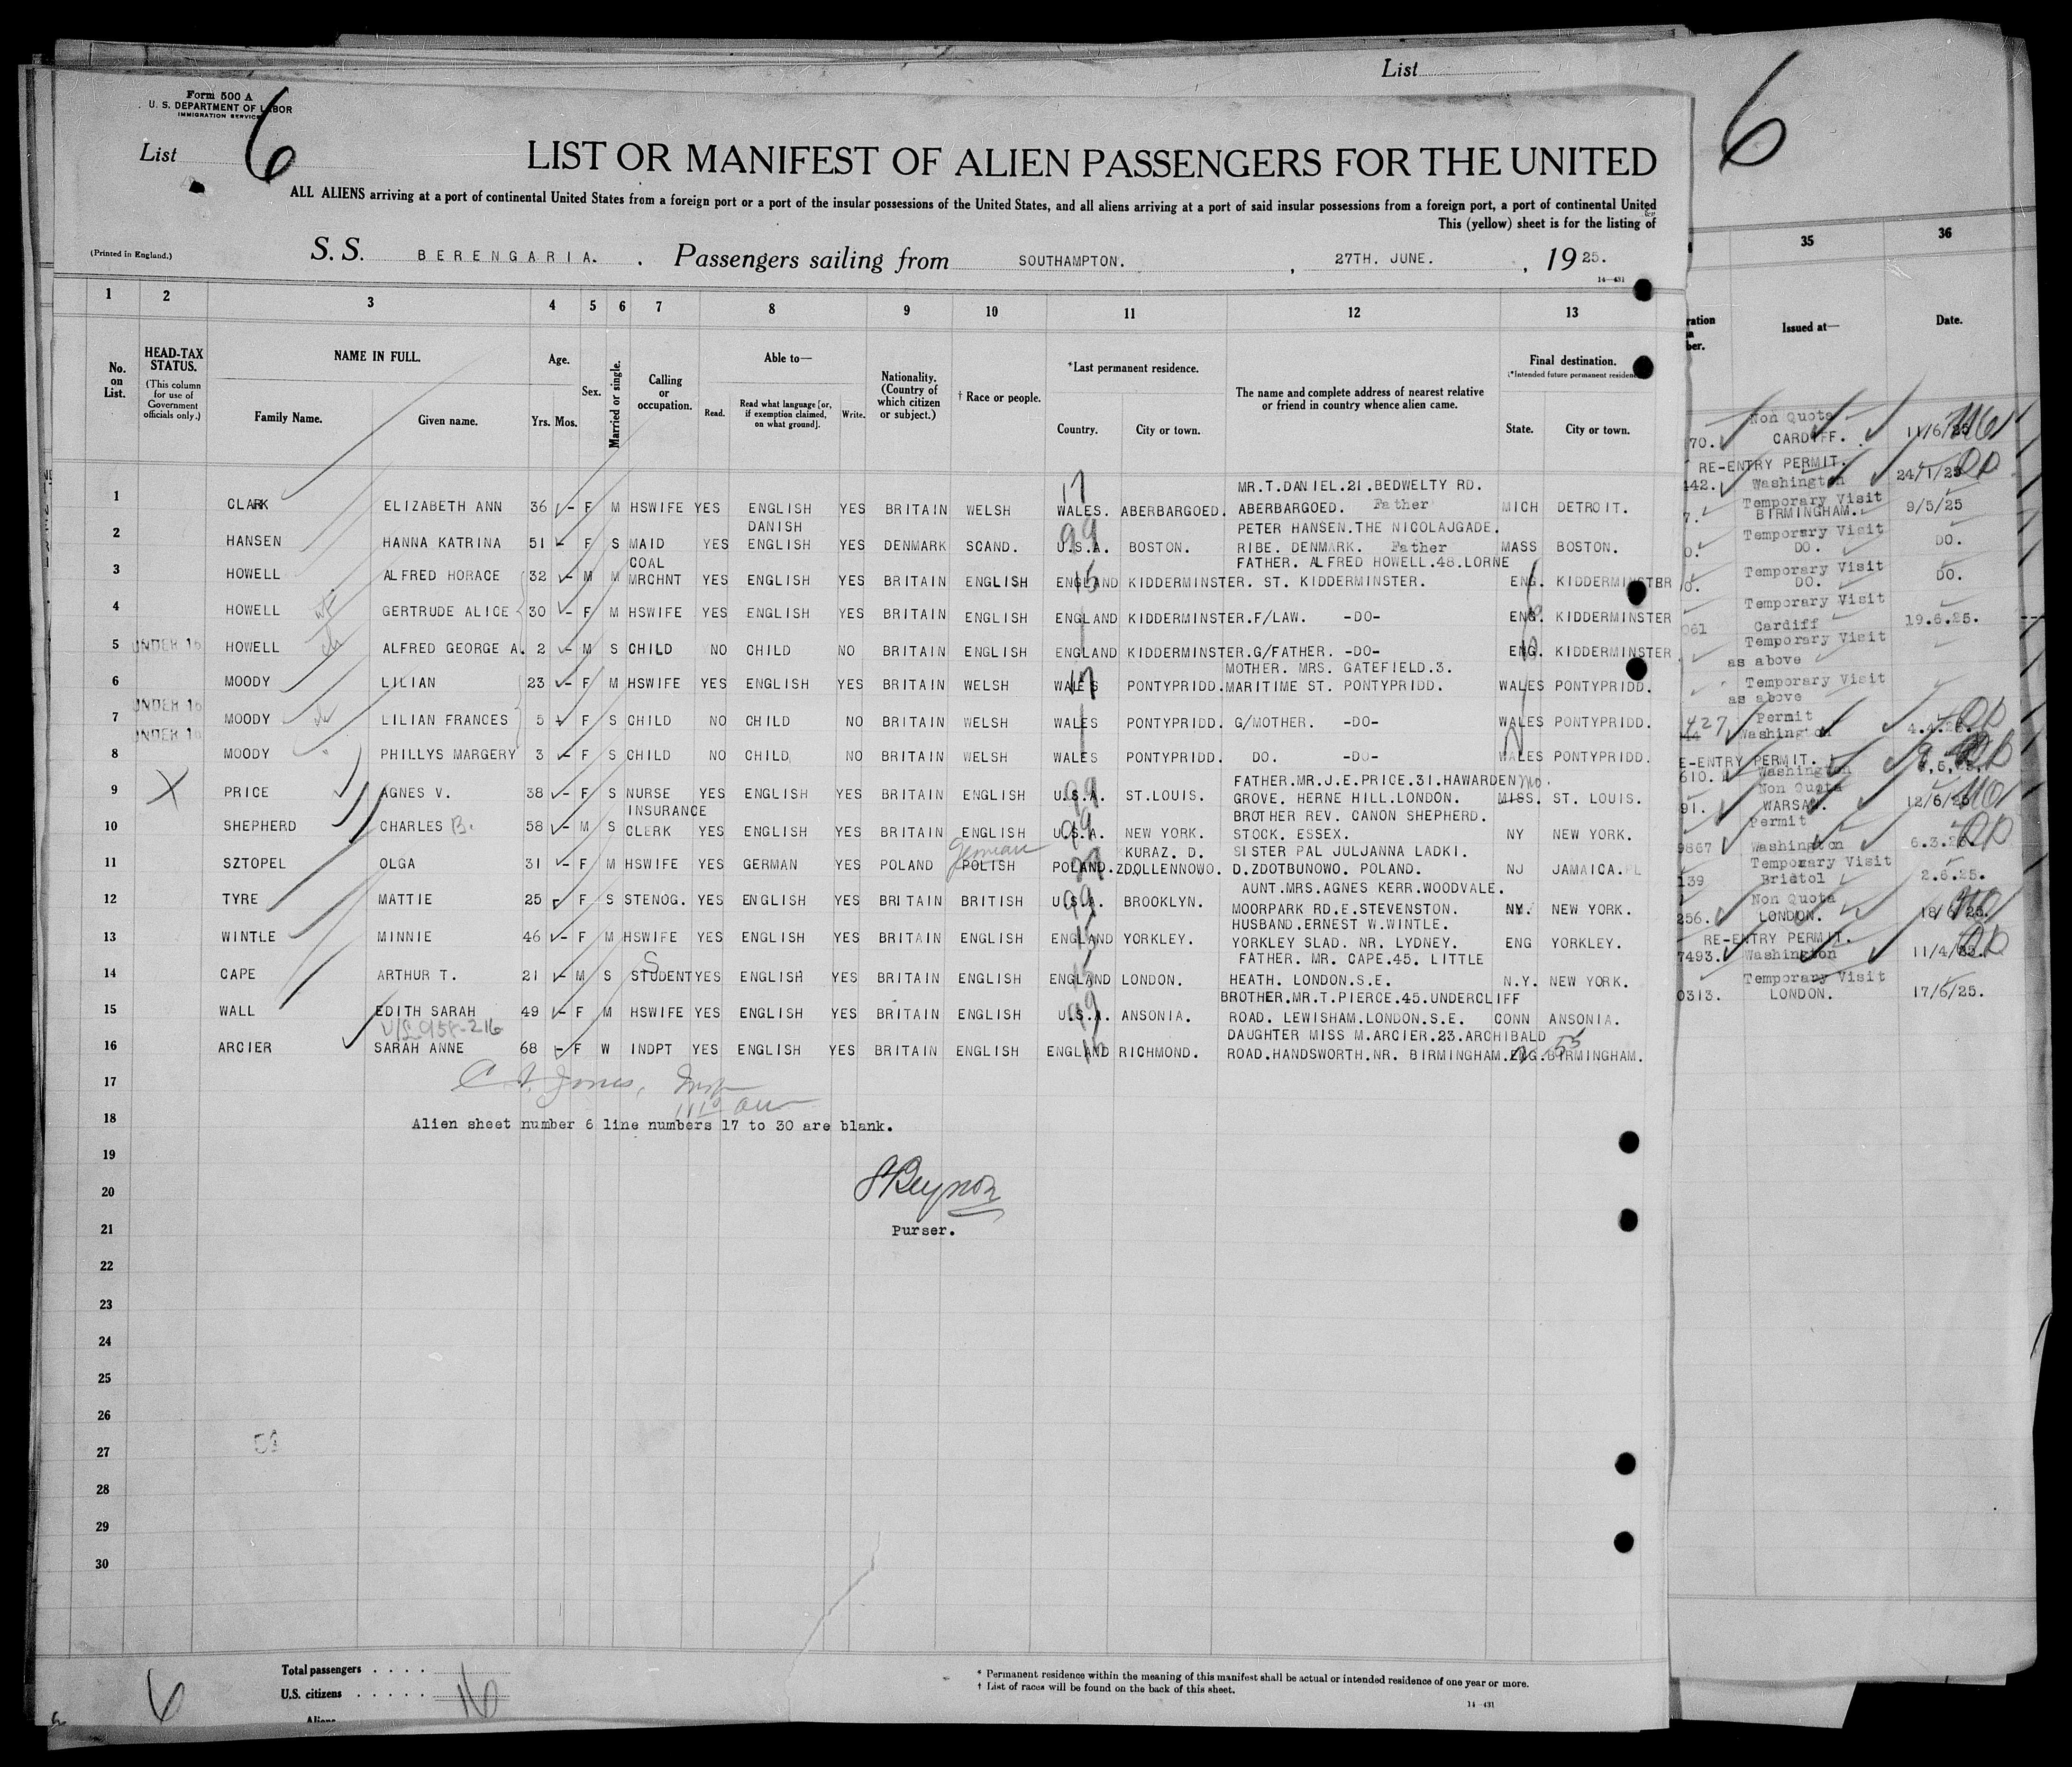 List
Form 500 A
U. S. DEPARTMENT OF LABOR
IMMIGRATION SERVICE
List 6
6
LIST OR MANIFEST OF ALIEN PASSENGERS FOR THE UNITED
ALL ALIENS arriving at a port of continental United States from a foreign port or a port of the insular possessions of the United States, and all aliens arriving at a port of said insular possessions from a foreign port, a port of continental United
This (yellow) sheet is for the listing of
(Printed in England.)
S. S. BERENGARIA. Passengers sailing from SOUTHAMPTON. , 27TH. JUNE. , 1925.
14-431
1 2 3 4 5 6 7 8 9 10 11 12 13
35 36
No. on List.
HEAD-TAX STATUS.
(This column for use of Government officials only.)
NAME IN FULL.
Family Name. Given name.
Age.
Yrs. Mos.
Sex.
Married or single.
Calling or occupation.
Able to—
Read. Read what language [or, if exemption claimed, on what ground]. Write.
Nationality. (Country of which citizen or subject.)
† Race or people.
*Last permanent residence.
Country. City or town.
The name and complete address of nearest relative or friend in country whence alien came.
Final destination.
(*Intended future permanent residence
State. City or town.
Issued at— Date.
MR.T.DANIEL.21.BEDWELTY RD.
1 CLARK ELIZABETH ANN 36 - F M HSWIFE YES ENGLISH YES BRITAIN WELSH WALES. ABERBARGOED. ABERBARGOED. Father MICH DETROIT.
DANISH PETER HANSEN.THE NICOLAJGADE.
2 HANSEN HANNA KATRINA 51 - F S MAID YES ENGLISH YES DENMARK SCAND. U.S.A. BOSTON. RIBE. DENMARK. Father MASS BOSTON.
COAL FATHER. ALFRED HOWELL.48.LORNE
3 HOWELL ALFRED HORACE 32 - M M MRCHNT YES ENGLISH YES BRITAIN ENGLISH ENGLAND KIDDERMINSTER. ST. KIDDERMINSTER. ENG. KIDDERMINSTER
4 HOWELL GERTRUDE ALICE 30 - F M HSWIFE YES ENGLISH YES BRITAIN ENGLISH ENGLAND KIDDERMINSTER.F/LAW. -DO- ENG. KIDDERMINSTER
5 UNDER 16 HOWELL ALFRED GEORGE A. 2 - M S CHILD NO CHILD NO BRITAIN ENGLISH ENGLAND KIDDERMINSTER.G/FATHER. -DO- ENG. KIDDERMINSTER
MOTHER. MRS. GATEFIELD.3.
6 MOODY LILIAN 23 - F M HSWIFE YES ENGLISH YES BRITAIN WELSH WALES PONTYPRIDD. MARITIME ST. PONTYPRIDD. WALES PONTYPRIDD.
7 UNDER 16 MOODY LILIAN FRANCES 5 F S CHILD NO CHILD NO BRITAIN WELSH WALES PONTYPRIDD. G/MOTHER. -DO- WALES PONTYPRIDD.
8 UNDER 16 MOODY PHILLYS MARGERY 3 - F S CHILD NO CHILD NO BRITAIN WELSH WALES PONTYPRIDD. DO. -DO- WALES PONTYPRIDD.
FATHER.MR.J.E.PRICE.31.HAWARDEN Mo.
9 X PRICE AGNES V. 38 - F S NURSE YES ENGLISH YES BRITAIN ENGLISH U.S.A. ST.LOUIS. GROVE. HERNE HILL.LONDON. MISS. ST. LOUIS.
INSURANCE BROTHER REV. CANON SHEPHERD.
10 SHEPHERD CHARLES B. 58 - M S CLERK YES ENGLISH YES BRITAIN ENGLISH U.S.A. NEW YORK. STOCK. ESSEX. NY NEW YORK.
German KURAZ. D. SISTER PAL JULJANNA LADKI.
11 SZTOPEL OLGA 31 - F M HSWIFE YES GERMAN YES POLAND POLISH POLAND. ZDOLLENNOWO. D.ZDOTBUNOWO. POLAND. NJ JAMAICA.
AUNT.MRS.AGNES KERR.WOODVALE.
12 TYRE MATTIE 25 F S STENOG. YES ENGLISH YES BRITAIN BRITISH U.S.A. BROOKLYN. MOORPARK RD.E.STEVENSTON. NY. NEW YORK.
HUSBAND.ERNEST W.WINTLE.
13 WINTLE MINNIE 46 - F M HSWIFE YES ENGLISH YES BRITAIN ENGLISH ENGLAND YORKLEY. YORKLEY SLAD. NR. LYDNEY. ENG YORKLEY.
FATHER. MR. CAPE.45. LITTLE
14 CAPE ARTHUR T. 21 - M S STUDENT YES ENGLISH YES BRITAIN ENGLISH ENGLAND LONDON. HEATH. LONDON.S.E. N.Y. NEW YORK.
BROTHER.MR.T.PIERCE.45.UNDERCLIFF
15 WALL EDITH SARAH 49 - F M HSWIFE YES ENGLISH YES BRITAIN ENGLISH U.S.A. ANSONIA. ROAD. LEWISHAM.LONDON.S.E. CONN ANSONIA.
DAUGHTER MISS M.ARCIER.23.ARCHIBALD
16 ARCIER SARAH ANNE 68 - F W INDPT YES ENGLISH YES BRITAIN ENGLISH ENGLAND RICHMOND. ROAD.HANDSWORTH.NR. BIRMINGHAM. ENG. BIRMINGHAM.
17
18
Alien sheet number 6 line numbers 17 to 30 are blank.
19
20
21 Purser.
22
23
24
25
26
27
28
29
30
ration
ber.
Non Quota
70. CARDIFF. 11/6/25
RE-ENTRY PERMIT.
442. Washington 24/1/25
Temporary Visit
7. BIRMINGHAM. 9/5/25
Temporary Visit
0. DO. DO.
Temporary Visit
DO. DO.
Temporary Visit
061 Cardiff 19.6.25.
Temporary Visit
as above
Temporary Visit
as above
427 Permit
Washington
E-ENTRY PERMIT.
610. Washington
Non Quota
91. WARSAW. 12/6/25
Permit
9867 Washington 6.3.25
Temporary Visit
139 Bristol 2.6.25.
Non Quota
256. LONDON. 18/6/25.
RE-ENTRY PERMIT.
7493. Washington 11/4/25.
Temporary Visit
0313. LONDON. 17/6/25.
Total passengers . . . .
U.S. citizens . . . . .
16
Aliens
6
* Permanent residence within the meaning of this manifest shall be actual or intended residence of one year or more.
† List of races will be found on the back of this sheet.
14-431